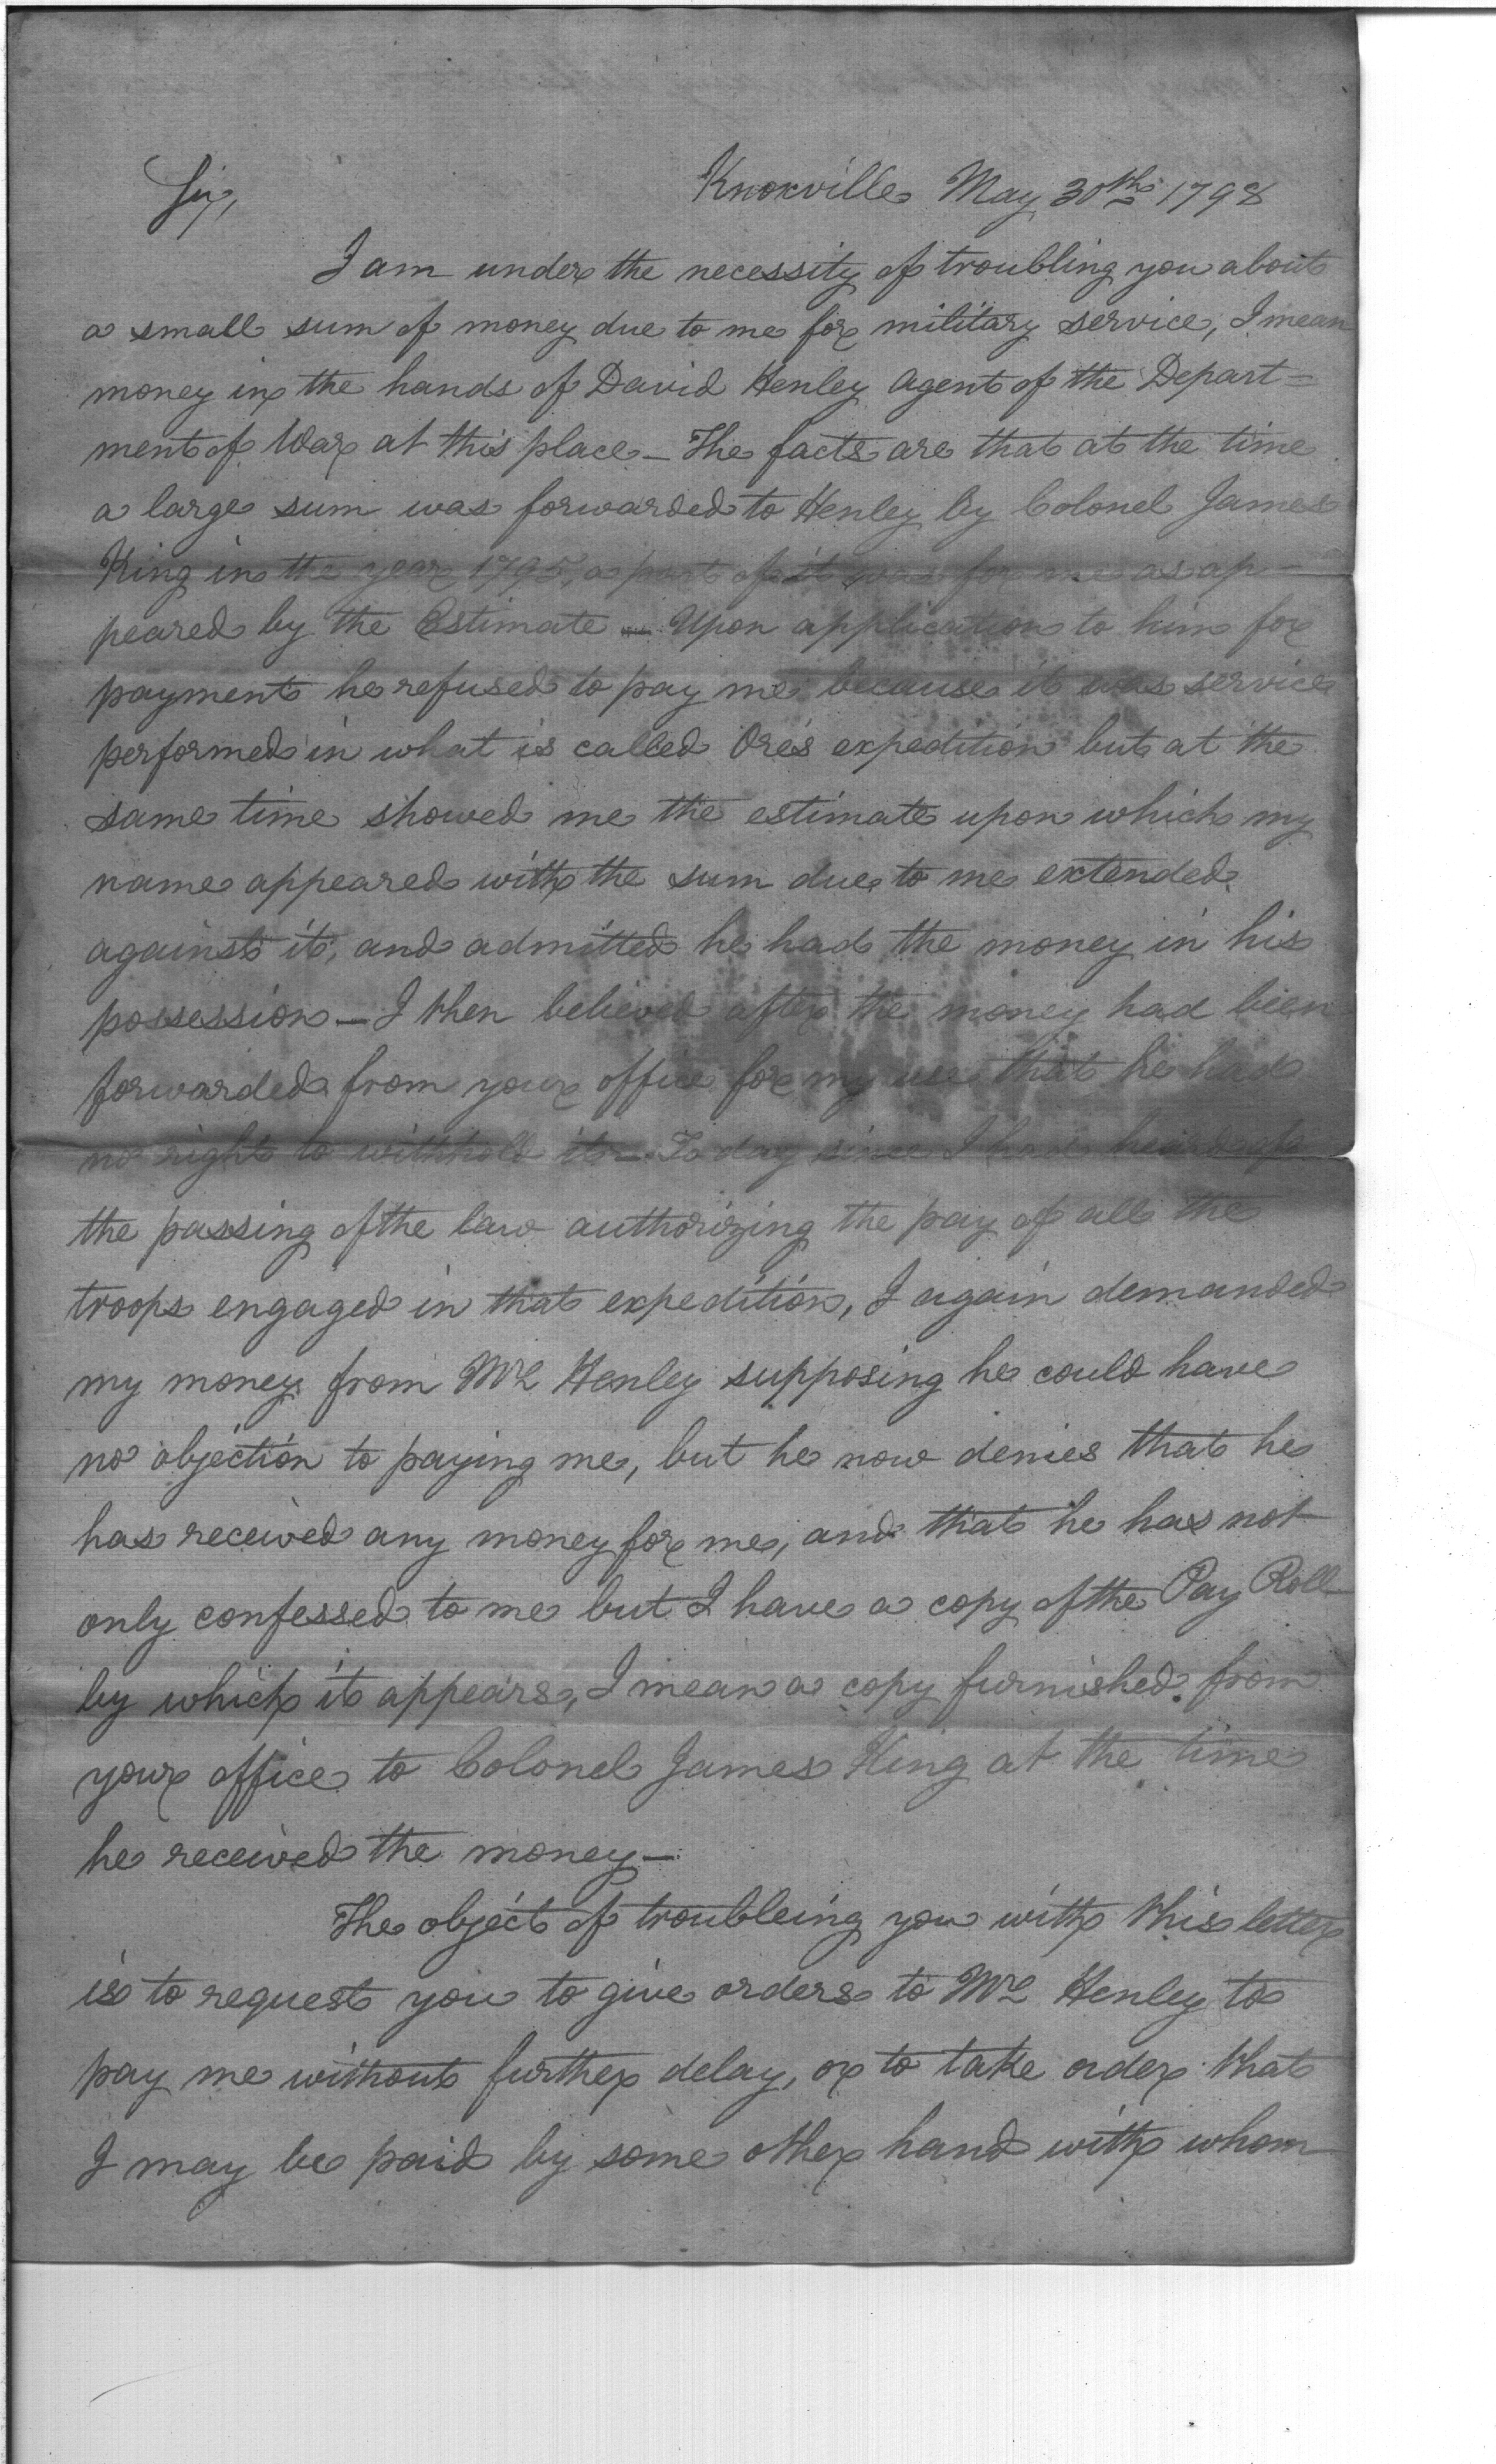 Sir, Knoxville May 30th 1798
I am under the necessity of troubling you about
a small sum of money due to me for military service, I mean
money in the hands of David Henley Agent of the Depart=
ment of War at this place — The facts are that at the time
a large sum was forwarded to Henley by Colonel James
King in the year 1795, a part of it was for me as ap-
peared by the Estimate — Upon application to him for
payment he refused to pay me because it was service
performed in what is called Ore's expedition but at the
same time showed me the estimate upon which my
name appeared with the sum due to me extended
against it, and admitted he had the money in his
possession — I then believed after the money had been
forwarded from your office for my use that he had
no right to withhold it — To day since I have heard of
the passing of the law authorizing the pay of all the
troops engaged in that expedition, I again demanded
my money from Mr Henley supposing he could have
no objection to paying me, but he now denies that he
has received any money for me, and that he has not
only confessed to me but I have a copy of the Pay Roll
by which it appears, I mean a copy furnished from
your office to Colonel James King at the time
he received the money —
The object of troubleing you with this letter
is to request you to give orders to Mr Henley to
pay me without further delay, or to take order that
I may be paid by some other hand with whom